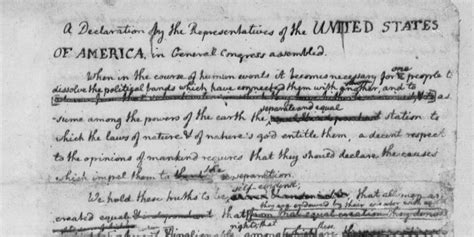 A Declaration by the Representatives of the UNITED STATES
OF AMERICA, in General Congress assembled.
When in the course of human events it becomes necessary for one people to
dissolve the political bands which have connected them with another, and to
as-
separate and equal
sume among the powers of the earth the station to
which the laws of nature & of nature's god entitle them, a decent respect
to the opinions of mankind requires that they should declare the causes
which impel them to the separation.
self-evident;
We hold these truths to be that all men are
they are endowed by their creator with
created equal that from that equal creation they derive
rights; that these
inalienable among